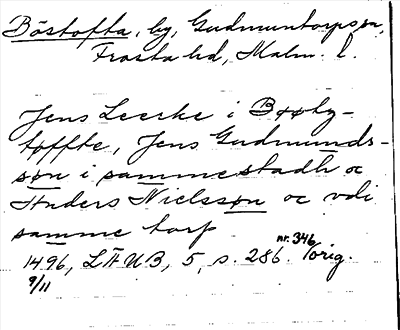 Böstofta, by, Gudmuntorps sn,
Frosta hd, Malm. l.
Jens Leerke i Bøøby-
toffte, Jens Gudmunds-
søn i sammestadh oc
Anders Nielssøn oc vdi
samme torp
1496, LÄUB, 5, s. 286. nr. 346 /orig.
9/11